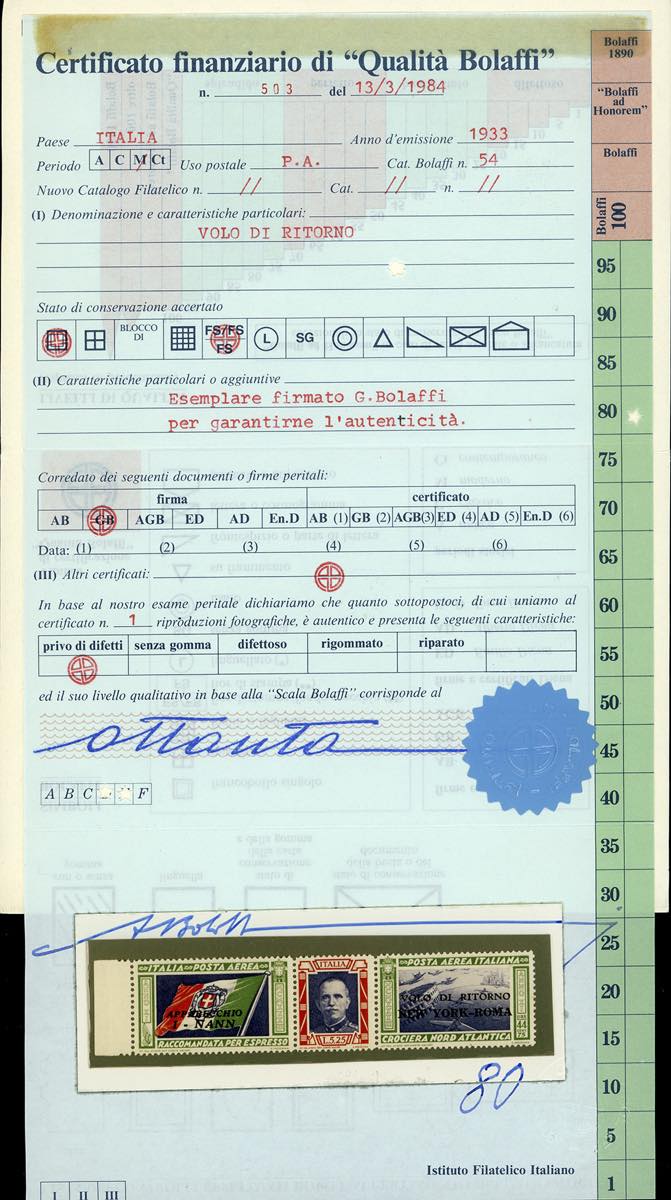 Certificato finanziario di "Qualità Bolaffi"
n. 503 del 13/3/1984
Paese ITALIA Anno d'emissione 1933
Periodo A C M Ct Uso postale P.A. Cat. Bolaffi n. 54
Nuovo Catalogo Filatelico n. // Cat. // n. //
(I) Denominazione e caratteristiche particolari:
VOLO DI RITORNO
Stato di conservazione accertato
BLOCCO DI FS/FS FS L SG
(II) Caratteristiche particolari o aggiuntive
Esemplare firmato G.Bolaffi
per garantirne l'autenticità.
Corredato dei seguenti documenti o firme peritali:
firma certificato
AB GB AGB ED AD En.D AB (1) GB (2) AGB(3) ED (4) AD (5) En.D (6)
Data: (1) (2) (3) (4) (5) (6)
(III) Altri certificati:
In base al nostro esame peritale dichiariamo che quanto sottopostoci, di cui uniamo al
certificato n. 1 riproduzioni fotografiche, è autentico e presenta le seguenti caratteristiche:
privo di difetti senza gomma difettoso rigommato riparato
ed il suo livello qualitativo in base alla "Scala Bolaffi" corrisponde al
ottanta
A B C F
ABolaffi
ITALIA POSTA AEREA
APPARECCHIO
I-NANN
RACCOMANDATA PER ESPRESSO
ITALIA
L.5.25
POSTA AEREA ITALIANA
VOLO DI RITORNO
NEW YORK-ROMA
LIRE
44
75
CROCIERA NORD ATLANTICA
80
Istituto Filatelico Italiano
I II III
Bolaffi
1890
"Bolaffi
ad
Honorem"
Bolaffi
Bolaffi
100
95
90
85
80
75
70
65
60
55
50
45
40
35
30
25
20
15
10
5
1